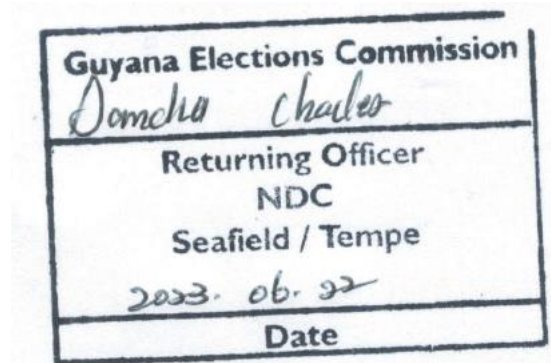 Guyana Elections Commission
Charles
Returning Officer
NDC
Seafield / Tempe
2023. 06. 22
Date